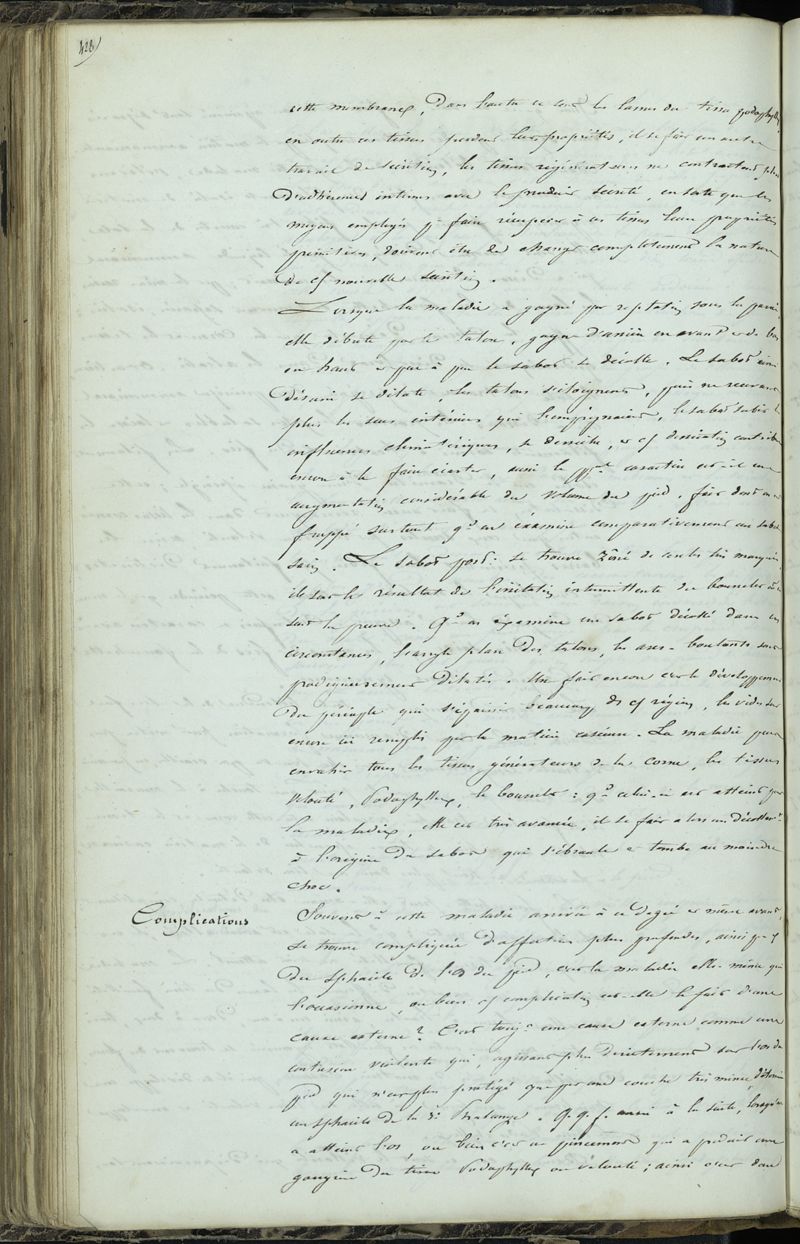 428
cette membrane, Dans l'autre ce sont les lames du tissu podophylleux
en outre ces tissus perdent leurs propriétés, il se fait un autre
travail de sécrétion, les tissus régénérateurs ne contractent plus
D'adhérences intimes avec le produit sécrété, en sorte que les
moyens employés pr faire récupérer à ces tissus leurs propriétés
primitives, doivent être de changer complètement la nature
De cette nouvelle sécrétion.
Lorsque la maladie a gagné par reptation sous la paroi
elle débute par le talon, gagne d'arrière en avant et de bas
en haut et peu à peu le sabot se décolle. Le sabot ainsi
désuni se dilate, les talons s'éloignent, puis ne recevant
plus les sucs intérieurs qui l'imprégnaient, le sabot subit les
influences climatériques, se dessèche, et cette dessication contribue
encore à le faire écarter, aussi le ppal caractère est-il une
augmentation considérable du volume du pied, fait dont on est
frappé surtout qd on examine comparativement un sabot
sain. Le sabot se trouve de cercles très marqués,
ils sont le résultat de l'irritation intermittente du bourrelet
sont la preuve. Qd on examine un sabot décollé dans ces
circonstances, l'angle plan des talons, les arcs-boutants sont
prodigieusement dilatés. Un fait encore c'est le développement
Du périople qui s'épaissit beaucoup ds cette région, les vides sont
encore ici remplis par la matière caséeuse. La maladie peut
envahir tous les tissus générateurs de la corne, les tissus
Velouté, Podophylleux, le bourrelet : qd celui-ci est atteint par
la maladie, elle est très avancée, il se fait alors un décollement
à l'origine du sabot qui s'ébranle et tombe au moindre
choc.
Complications
Souvent cette maladie arrivée à ce degré et même avant
se trouve compliquée d'affections plus profondes, ainsi que
Du sphacèle de l'os du pied, est-ce la maladie elle-même qui
l'occasionne, ou bien cette complication est-elle le fait d'une
cause externe ? C'est toujs une cause externe comme une
contusion violente qui, agissant plus directement sur l'os du
pied qui n'est plus protégé que par une couche très mince, détermine
un sphacèle de la 3e Phalange. Q.q.f. aussi à la suite, lorsqu'on
a atteint l'os, ou bien c'est un pincement qui a produit une
gangrène du tissu Podophylleux ou velouté ; ainsi c'est dans